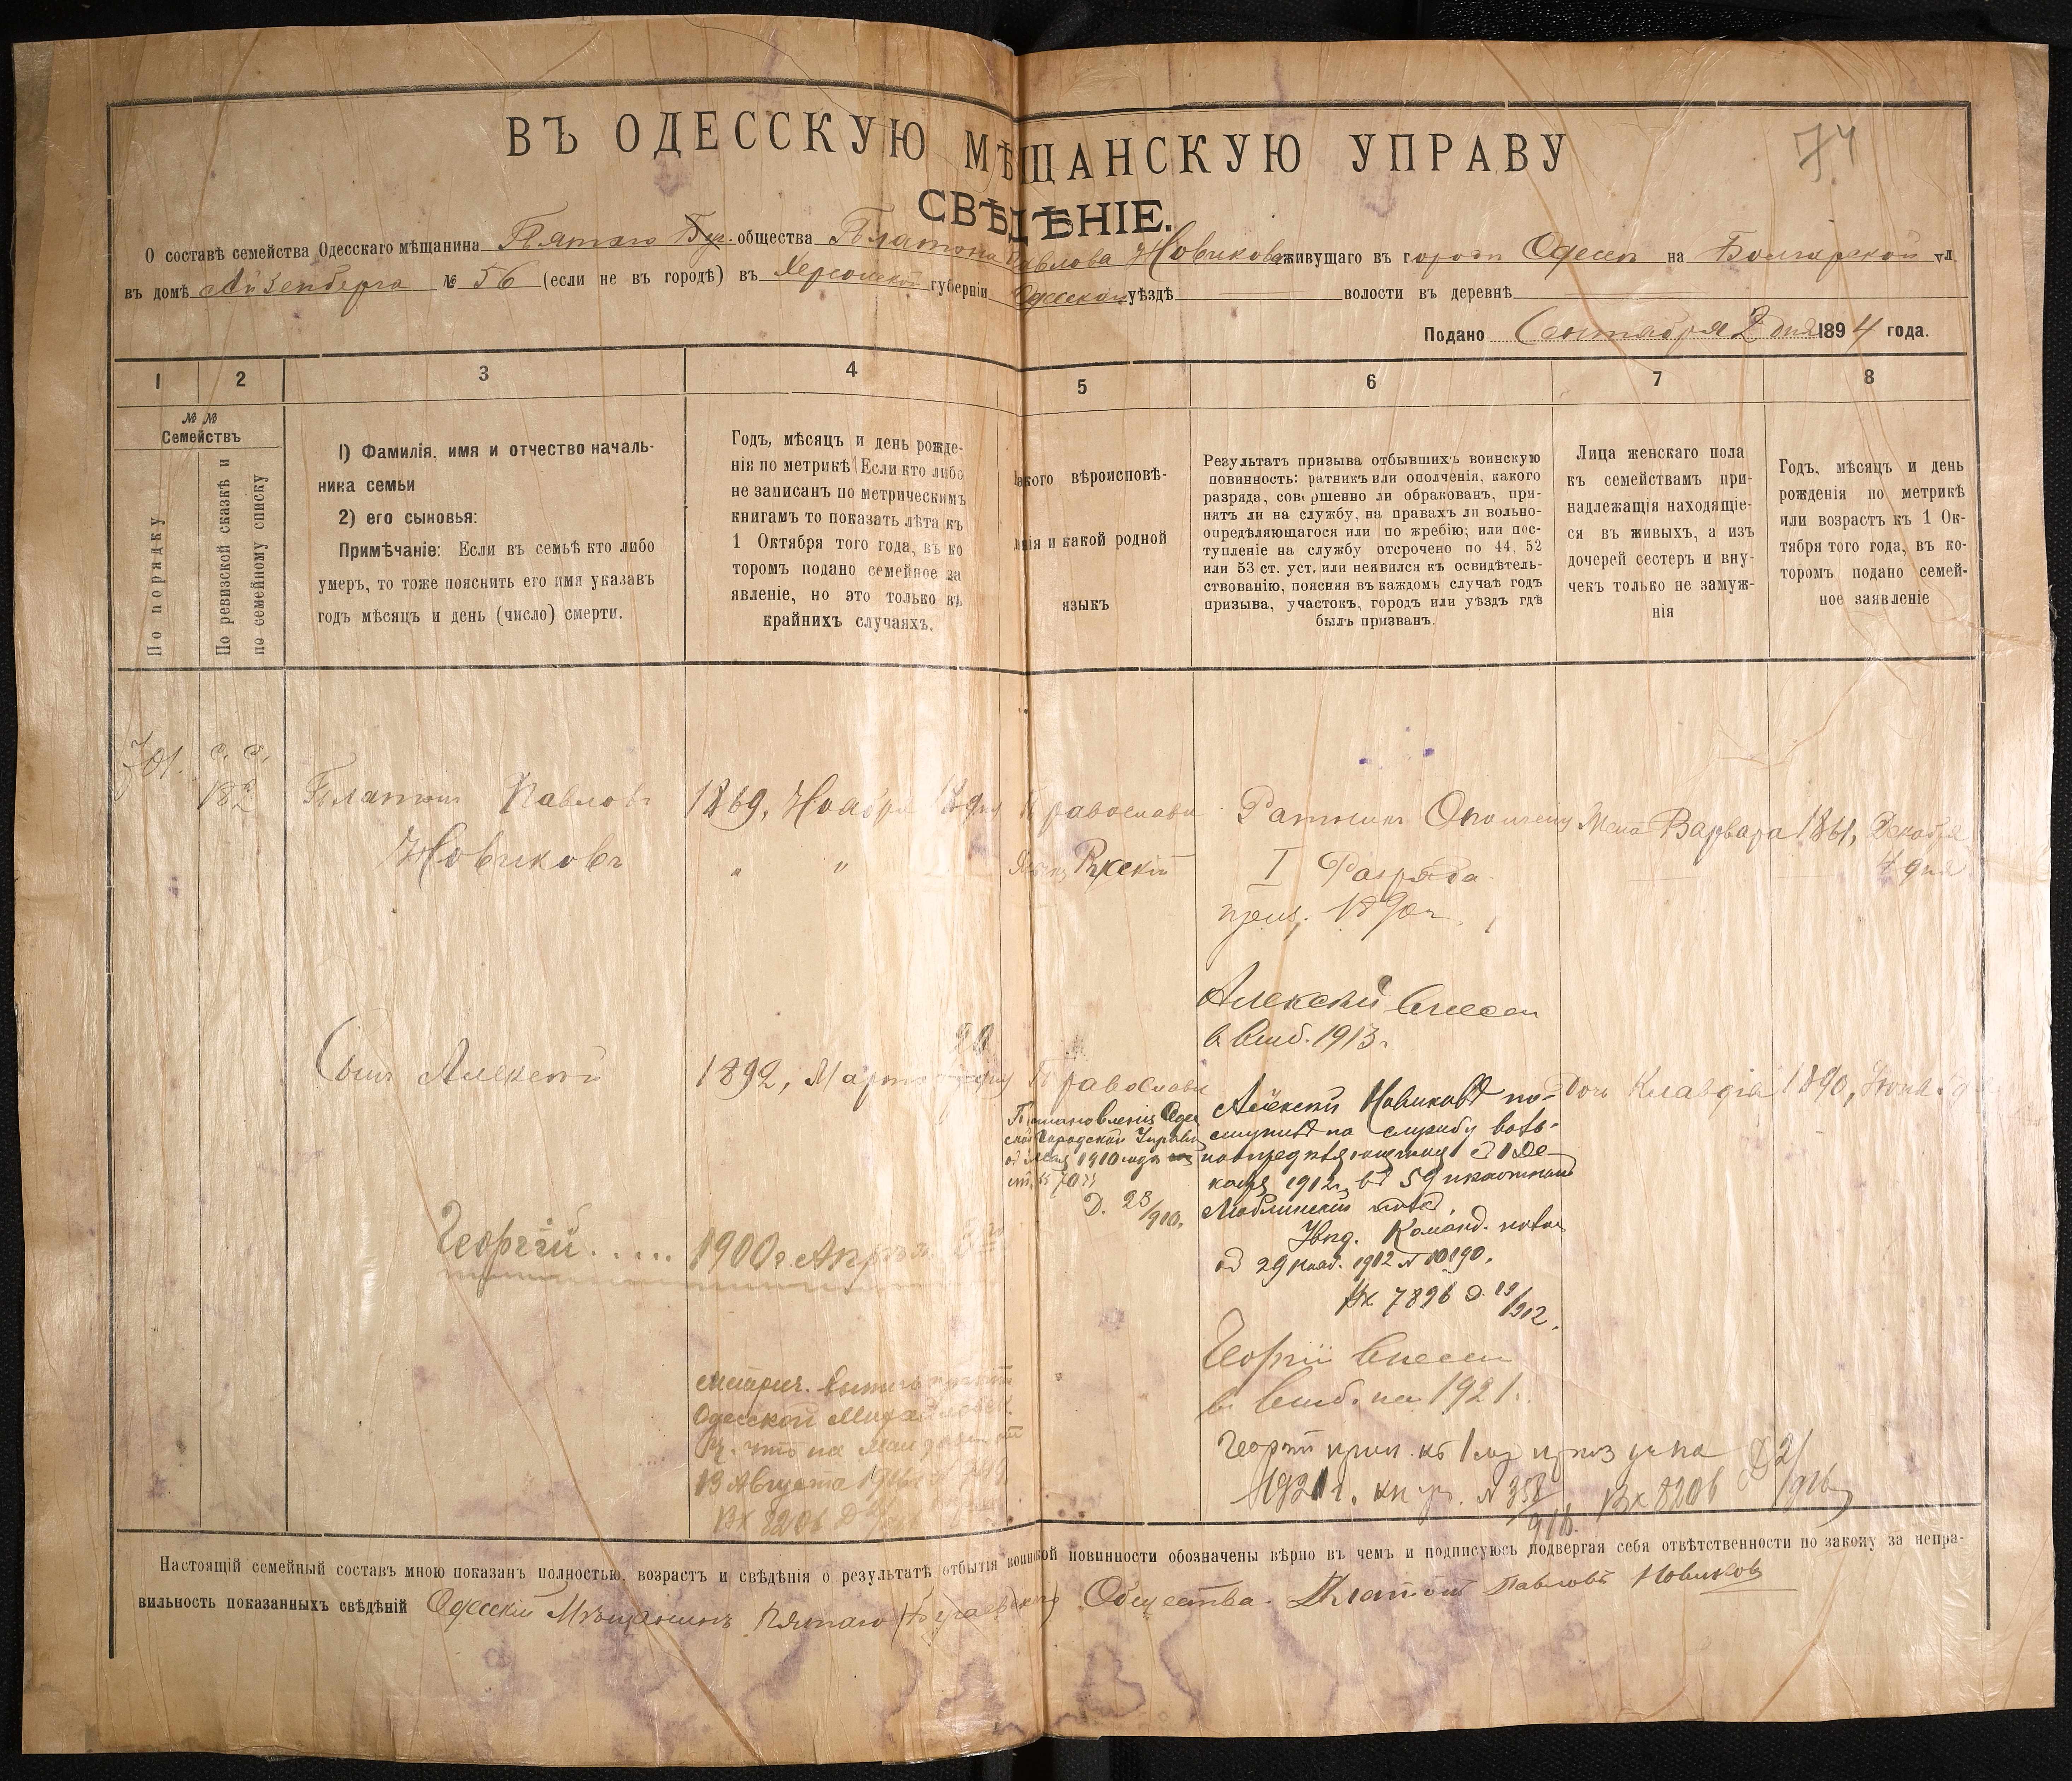 74
ВЪ ОДЕССКУЮ МѢЩАНСКУЮ УПРАВУ
СВѢДѢНІЕ.
О составѣ семейства Одесскаго мѣщанина Пятаго Буг. общества Платона Павлова Новикова живущаго въ городѣ Одессѣ на Болгарской ул.
въ домѣ Айзенберга № 56 (если не въ городѣ) въ Херсонской губерніи Одесскомъ уѣздѣ волости въ деревнѣ
Подано Сентября 2 дня 1894 года.
1 2 3 4 5 6 7 8
№ №
Семействъ
По порядку
По ревизской сказкѣ и
по семейному списку
1) Фамилія, имя и отчество началь-
ника семьи
2) его сыновья:
Примѣчаніе: Если въ семьѣ кто либо
умеръ, то тоже пояснить его имя указавъ
годъ мѣсяцъ и день (число) смерти.
Годъ, мѣсяцъ и день рожде-
нія по метрикѣ Если кто либо
не записанъ по метрическимъ
книгамъ то показать лѣта къ
1 Октября того года, въ ко
торомъ подано семейное за
явленіе, но это только въ
крайнихъ случаяхъ.
акого вѣроисповѣ-
нія и какой родной
языкъ
Результатъ призыва отбывшихъ воинскую
повинность: ратникъ или ополченія, какого
разряда, совершенно ли обракованъ, при-
нятъ ли на службу, на правахъ ли вольно-
опредѣляющагося или по жребію; или пос-
тупленіе на службу отсрочено по 44, 52
или 53 ст. уст. или неявился къ освидѣтель-
ствованію, поясняя въ каждомъ случаѣ годъ
призыва, участокъ, городъ или уѣздъ гдѣ
былъ призванъ.
Лица женскаго пола
къ семействамъ при-
надлежащія находящіе-
ся въ живыхъ, а изъ
дочерей сестеръ и вну-
чекъ только не замуж-
нія
Годъ, мѣсяцъ и день
рожденія по метрикѣ
или возрастъ къ 1 Ок-
тября того года, въ ко-
торомъ подано семей-
ное заявленіе
701. с. с.
182
Платонъ Павловъ
Новиковъ
1869, Ноября дня
" "
Православн
Языкъ Русскій
Ратникъ Ополченія
I Разряда
приз. 1890 г.
Жена Варвара
1861, Декабря
4 дня
Алексѣй внесен
в 1913 г.
Сынъ Алексѣй
1892, Марта 20
Православн
Постановленіе Одес
ской Городской Управы
от Мая 1910 года
Д. 23/910.
Алексѣй Новиковъ по-
ступилъ на службу воль-
ноопредѣляющимся с 1 Де-
кабря 1912 г. въ 59 пехотный
Люблинскій полкъ,
Увѣд. Команд. полка
от 29 Нояб. 1912 № 10190.
Вх 7896 Д. 19/912.
Дочь Клавдія
1890, Іюня
Георгій . . . . .
1900 г. Апрѣля
Метрич. выпись
Одесской Михайловск.
Ц.
13 Августа 1916 г. №
Вх 8206 Д
Георгій внесен
в на 1921 г.
Георгій прип. къ 1 приз уч на
1921 г. № 358/916. Вх 8206 Д 2/916
Настоящій семейный составъ мною показанъ полностью, возрастъ и свѣдѣнія о результатѣ отбытія воинской повинности обозначены вѣрно въ чемъ и подписуюсь подвергая себя отвѣтственности по закону за непра-
вильность показанныхъ свѣдѣній Одесскій Мѣщанинъ Пятаго (Бугаевскаго) Общества Платонъ Павловъ Новиковъ